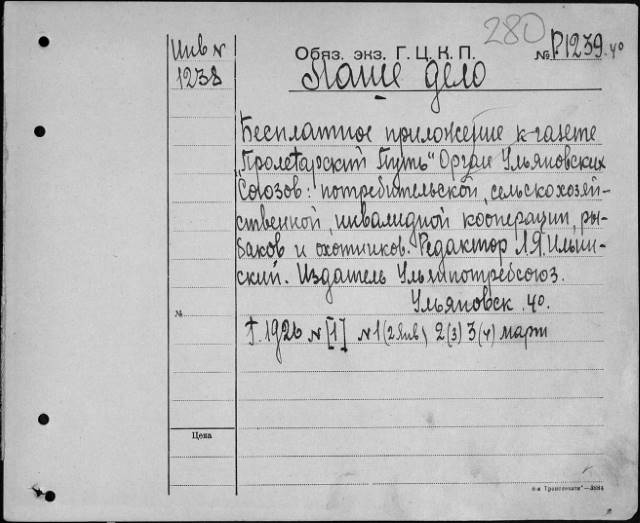 280
Инв №
1238
Обяз. экз. Г. Ц. К. П.
№ Р1239.4°
Наше дело
Бесплатное приложение к газете
„Пролетарский Путь" Орган Ульяновских
Союзов: потребительской, сельскохозяй-
ственной, инвалидной кооперации, ры-
баков и охотников. Редактор Л.Я. Ильин-
ский. Издатель Ульянпотребсоюз.
Ульяновск. 4°.
№
1926 № [1] №1 (2 янв) 2(3) 3(4) март
Цена